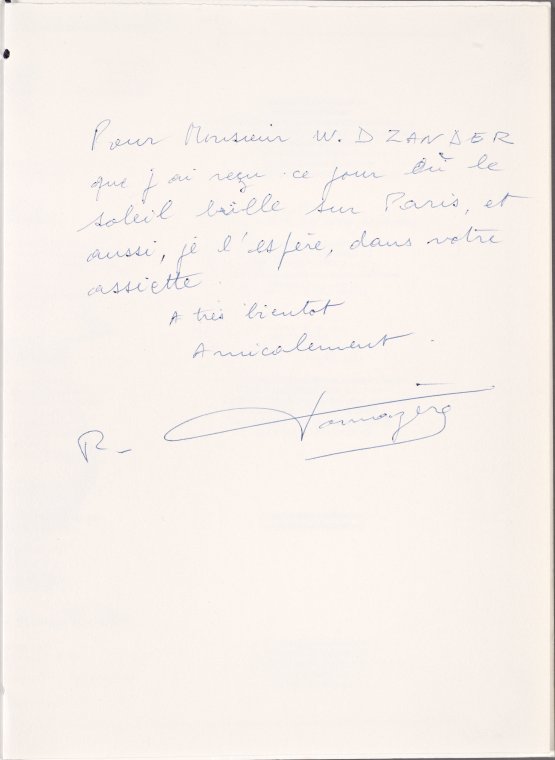 Pour Monsieur W. DZANDER
que j'ai reçu ce jour où le
soleil brille sur Paris, et
aussi, je l'espère, dans votre
assiette.
A très bientot
Amicalement.
R.